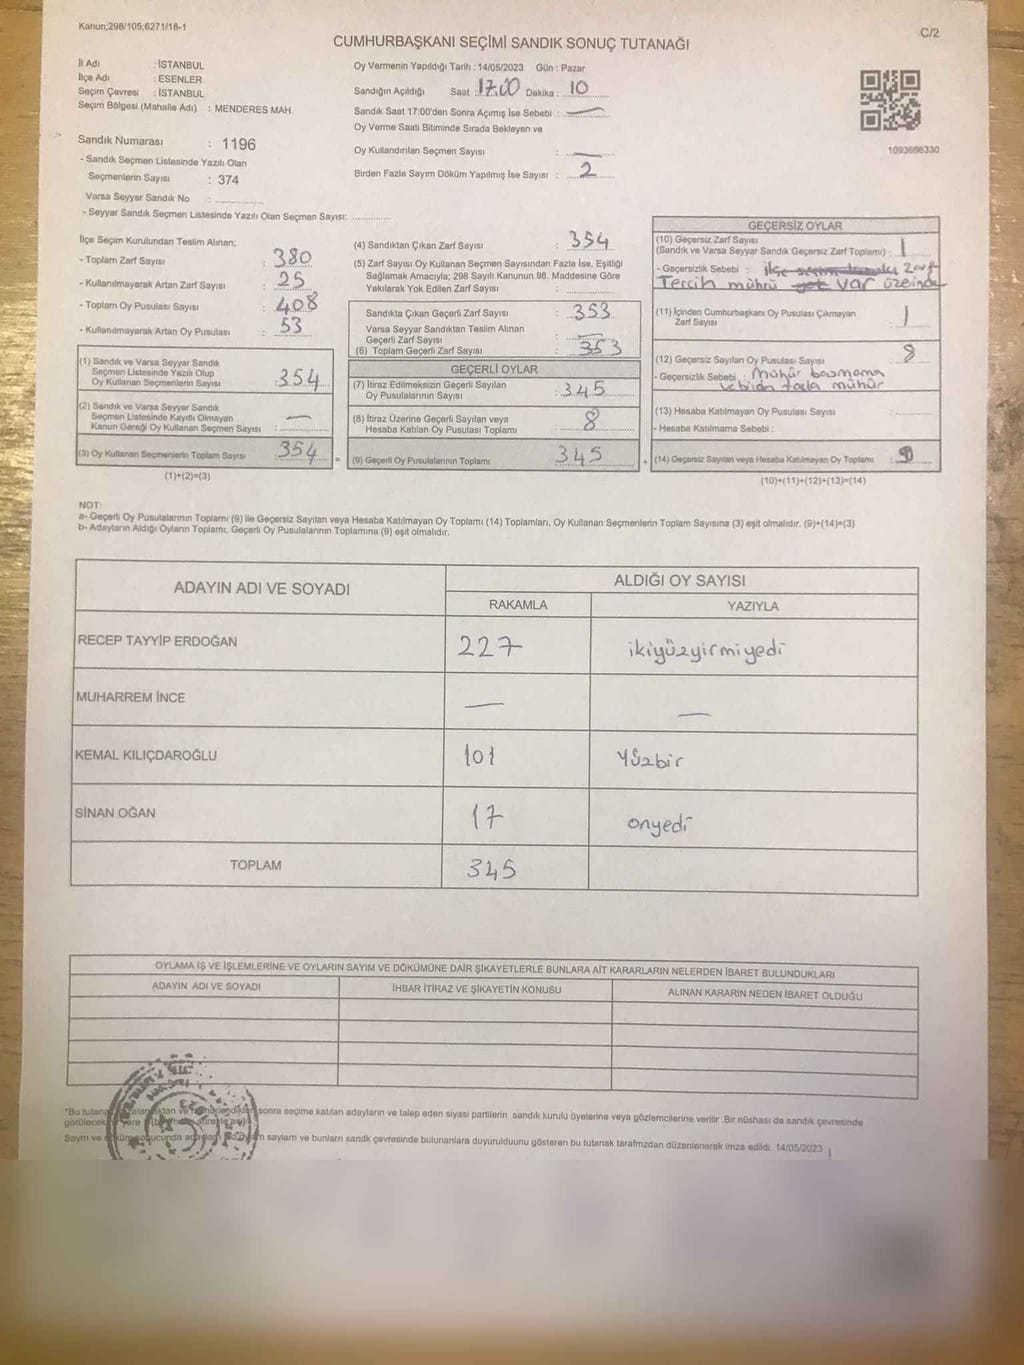 Kanun;298/105;6271/18-1
C/2
CUMHURBAŞKANI SEÇİMİ SANDIK SONUÇ TUTANAĞI
İl Adı : İSTANBUL
İlçe Adı : ESENLER
Seçim Çevresi : İSTANBUL
Seçim Bölgesi (Mahalle Adı) : MENDERES MAH.
Sandık Numarası : 1196
- Sandık Seçmen Listesinde Yazılı Olan
Seçmenlerin Sayısı : 374
Varsa Seyyar Sandık No : ................
- Seyyar Sandık Seçmen Listesinde Yazılı Olan Seçmen Sayısı: .............
Oy Vermenin Yapıldığı Tarih : 14/05/2023 Gün : Pazar
Sandığın Açıldığı Saat : 17.00 Dakika : 10
Sandık Saat 17:00'den Sonra Açımış İse Sebebi : —
Oy Verme Saati Bitiminde Sırada Bekleyen ve
Oy Kullandırılan Seçmen Sayısı : —
Birden Fazla Sayım Döküm Yapılmış İse Sayısı : 2
1093696330
İlçe Seçim Kurulundan Teslim Alınan;
- Toplam Zarf Sayısı : 380
- Kullanılmayarak Artan Zarf Sayısı : 25
- Toplam Oy Pusulası Sayısı : 408
- Kullanılmayarak Artan Oy Pusulası : 53
(1) Sandık ve Varsa Seyyar Sandık
Seçmen Listesinde Yazılı Olup
Oy Kullanan Seçmenlerin Sayısı : 354
(2) Sandık ve Varsa Seyyar Sandık
Seçmen Listesinde Kayıtlı Olmayan
Kanun Gereği Oy Kullanan Seçmen Sayısı : —
(3) Oy Kullanan Seçmenlerin Toplam Sayısı : 354
(1)+(2)=(3)
(4) Sandıktan Çıkan Zarf Sayısı : 354
(5) Zarf Sayısı Oy Kullanan Seçmen Sayısından Fazla İse, Eşitliği
Sağlamak Amacıyla; 298 Sayılı Kanunun 98. Maddesine Göre
Yakılarak Yok Edilen Zarf Sayısı : ............
Sandıkta Çıkan Geçerli Zarf Sayısı : 353
Varsa Seyyar Sandıktan Teslim Alınan
Geçerli Zarf Sayısı : —
(6) Toplam Geçerli Zarf Sayısı : 353
GEÇERLİ OYLAR
(7) İtiraz Edilmeksizin Geçerli Sayılan
Oy Pusulalarının Sayısı : 345
(8) İtiraz Üzerine Geçerli Sayılan veya
Hesaba Katılan Oy Pusulası Toplamı : 8
= (9) Geçerli Oy Pusulalarının Toplamı 345
GEÇERSİZ OYLAR
(10) Geçersiz Zarf Sayısı
(Sandık ve Varsa Seyyar Sandık Geçersiz Zarf Toplamı) : 1
- Geçersizlik Sebebi : Zarf
Tercih mührü var üzeinde
(11) İçinden Cumhurbaşkanı Oy Pusulası Çıkmayan
Zarf Sayısı : 1
(12) Geçersiz Sayılan Oy Pusulası Sayısı : 8
- Geçersizlik Sebebi : Mühür basmama
ve birden fazla mühür
(13) Hesaba Katılmayan Oy Pusulası Sayısı : ............
- Hesaba Katılmama Sebebi :
+ (14) Geçersiz Sayılan veya Hesaba Katılmayan Oy Toplamı : 9
(10)+(11)+(12)+(13)=(14)
NOT:
a- Geçerli Oy Pusulalarının Toplamı (9) ile Geçersiz Sayılan veya Hesaba Katılmayan Oy Toplamı (14) Toplamları, Oy Kullanan Seçmenlerin Toplam Sayısına (3) eşit olmalıdır. (9)+(14)=(3)
b- Adayların Aldığı Oyların Toplamı, Geçerli Oy Pusulalarının Toplamına (9) eşit olmalıdır.
ADAYIN ADI VE SOYADI
ALDIĞI OY SAYISI
RAKAMLA YAZIYLA
RECEP TAYYİP ERDOĞAN 227 ikiyüzyirmiyedi
MUHARREM İNCE — —
KEMAL KILIÇDAROĞLU 101 Yüzbir
SİNAN OĞAN 17 onyedi
TOPLAM 345
OYLAMA İŞ VE İŞLEMLERİNE VE OYLARIN SAYIM VE DÖKÜMÜNE DAİR ŞİKAYETLERLE BUNLARA AİT KARARLARIN NELERDEN İBARET BULUNDUKLARI
ADAYIN ADI VE SOYADI İHBAR İTİRAZ VE ŞİKAYETİN KONUSU ALINAN KARARIN NEDEN İBARET OLDUĞU
*Bu tutanak sonra seçime katılan adayların ve talep eden siyasi partilerin sandık kurulu üyelerine veya gözlemcilerine verilir .Bir nüshası da sandık çevresinde
görülecek yere
Sayım ve saylam ve bunların sandık çevresinde bulunanlara duyurulduunu gösteren bu tutanak tarafmzdan düzenlenerek imza edildi. 14/05/2023